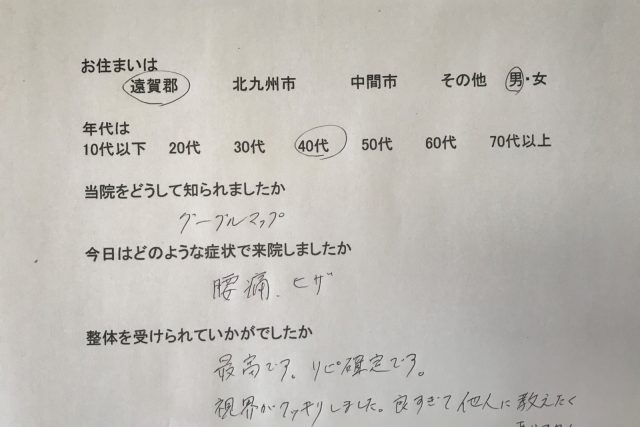 お住まいは
遠賀郡 北九州市 中間市 その他 男・女
年代は
10代以下 20代 30代 40代 50代 60代 70代以上
当院をどうして知られましたか
グーグルマップ
今日はどのような症状で来院しましたか
腰痛、ヒザ
整体を受けられていかがでしたか
最高です。リピ確定です。
視界がクッキリしました。良すぎて他人に教えたく